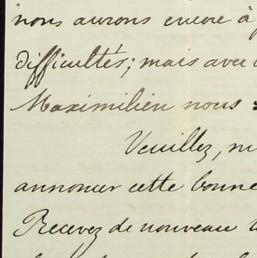 nous aurons encore à
difficultés; mais avec
Maximilien nous
Veuillez,
annoncer cette bonne
Recevez de nouveau